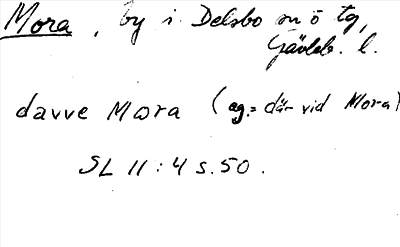 Mora, by i Delsbo sn o tg,
Gävleb. l.
davve Mora (eg. = där vid Mora)
SL 11:4 s. 50.